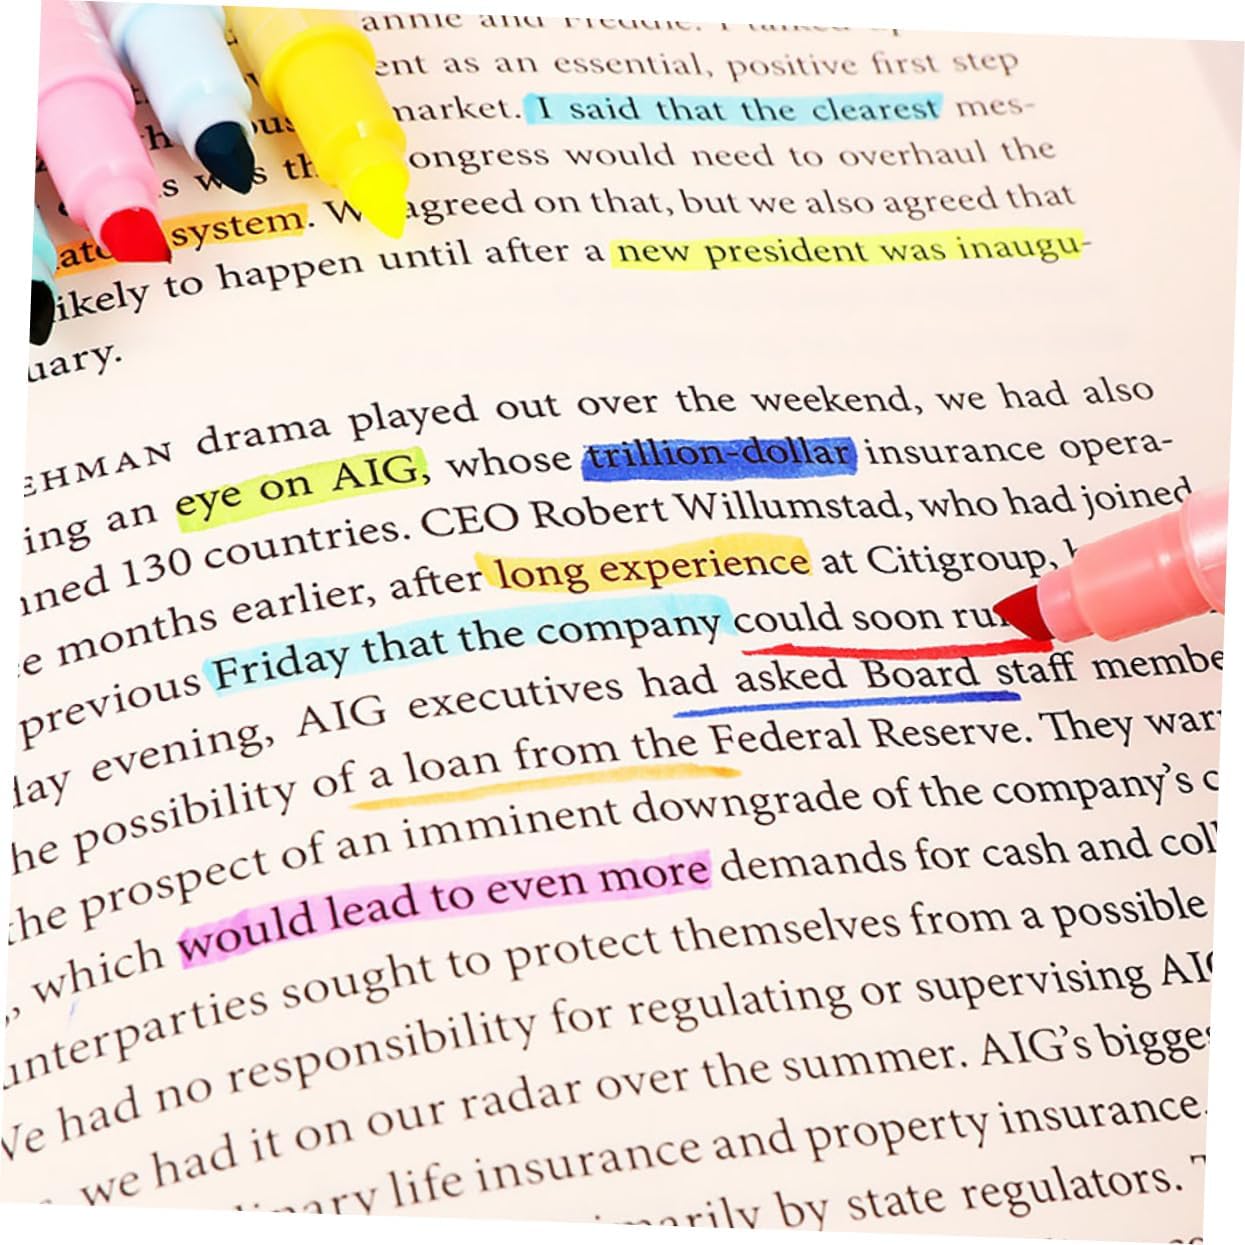 annie and Freddie. I talked
ent as an essential, positive first step
market. I said that the clearest mes-
ongress would need to overhaul the
system. W agreed on that, but we also agreed that
ikely to happen until after a new president was inaugu-
uary.
EHMAN drama played out over the weekend, we had also
ing an eye on AIG, whose trillion-dollar insurance opera-
nned 130 countries. CEO Robert Willumstad, who had joined
e months earlier, after long experience at Citigroup,
previous Friday that the company could soon run
lay evening, AIG executives had asked Board staff membe
he possibility of a loan from the Federal Reserve. They warn
the prospect of an imminent downgrade of the company's c
, which would lead to even more demands for cash and coll
unterparties sought to protect themselves from a possible
We had no responsibility for regulating or supervising AIG
we had it on our radar over the summer. AIG's bigges
inary life insurance and property insurance.
marily by state regulators.